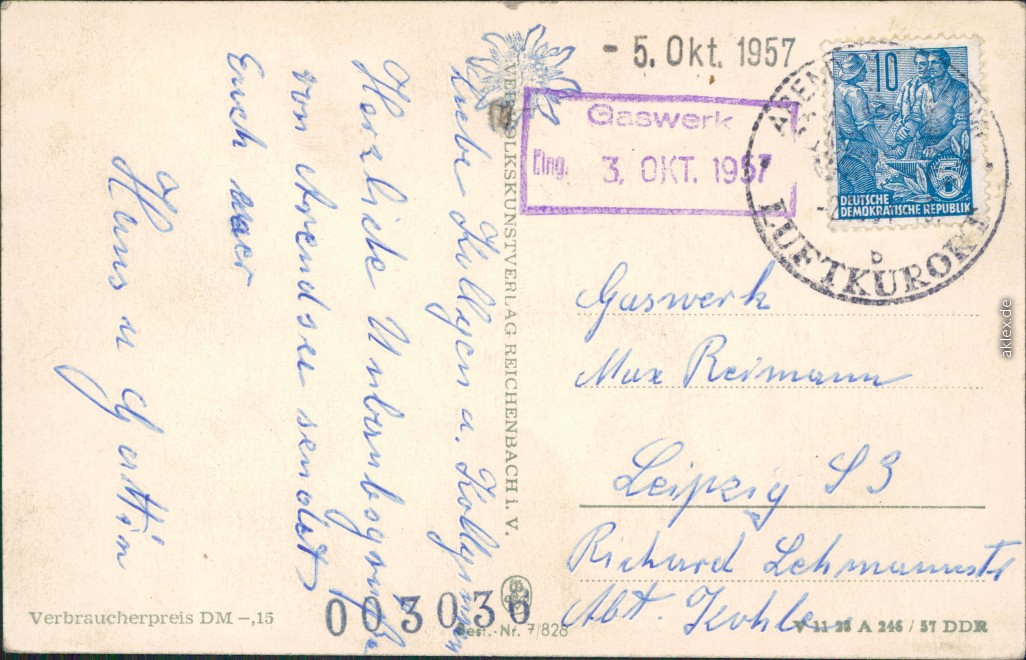 Liebe Kollegen u. Kolleginnen
Herzliche Urlaubsgrüße
von Arendsee sendet
Euch
Hans u Gattin
VEB VOLKSKUNSTVERLAG REICHENBACH i. V.
- 5. Okt. 1957
Gaswerk
Eing. 3. OKT. 1957
10
5
DEUTSCHE
DEMOKRATISCHE REPUBLIK
b
LUFTKURORT
Gaswerk
Max Reimann
Leipzig S3
Richard Lehmannstr
Abt. Kohlen
Verbraucherpreis DM –,15
003036
Best.-Nr. 7/828
V 11 28 A 246 / 57 DDR
aklex.de